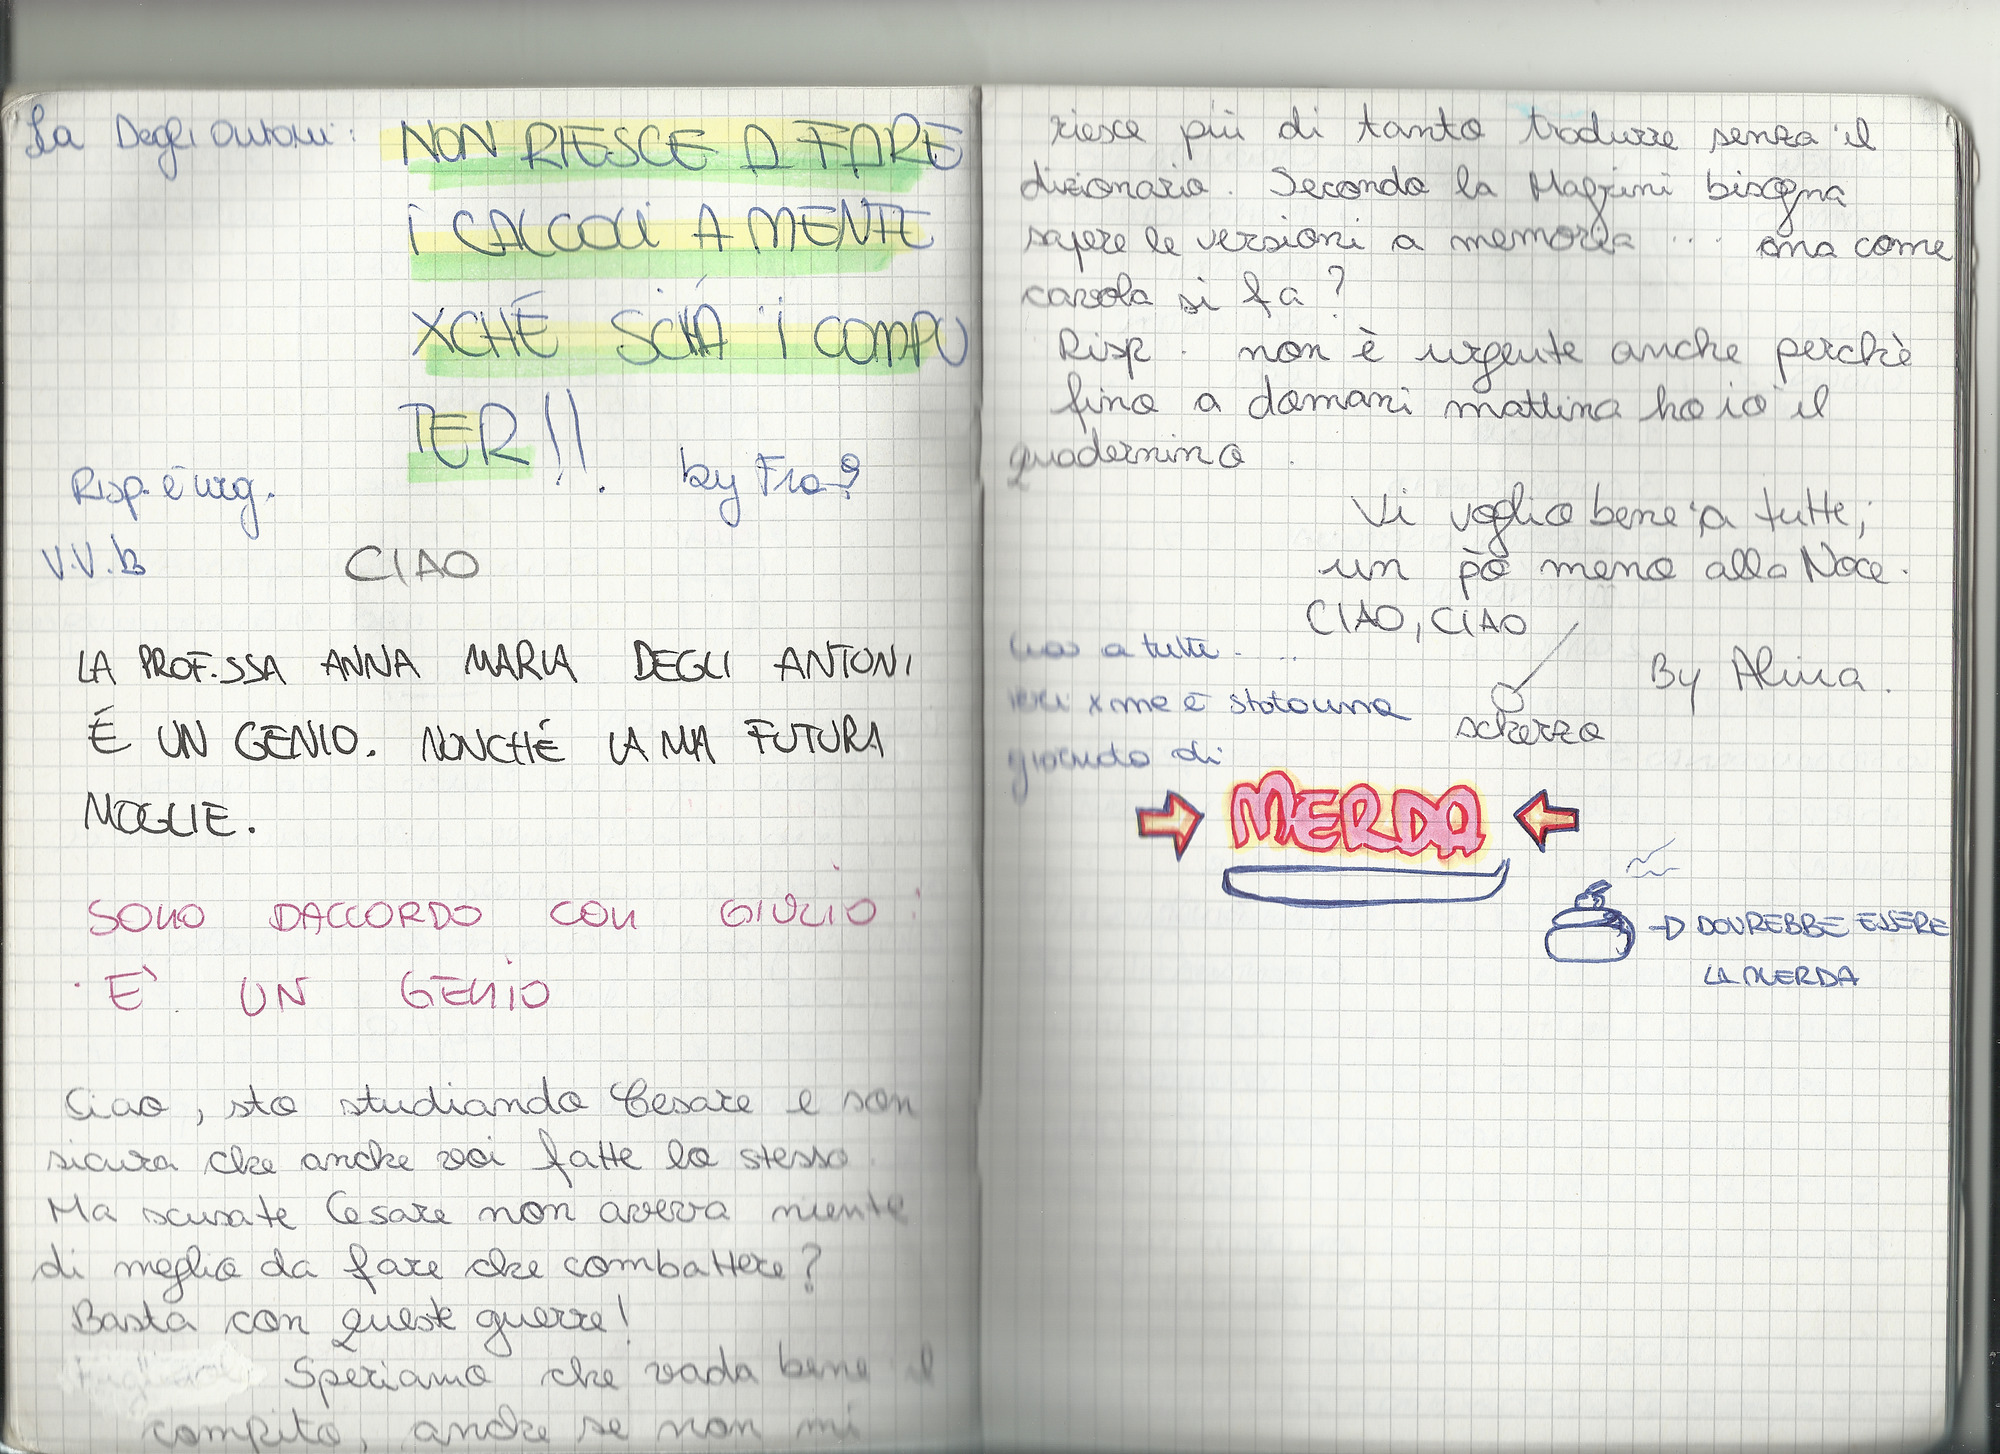 La Degli Antoni: NON RIESCE A FARE
I CALCOLI A MENTE
XCHÉ SCIÁ I COMPU
TER!!
by Fra
Risp. è urg.
V.V.B
CIAO
LA PROF.SSA ANNA MARIA DEGLI ANTONI
É UN GENIO. NONCHÉ LA MIA FUTURA
MOGLIE.
SONO DACCORDO CON GIULIO:
E' UN GENIO
Ciao, sto studiando Cesare e son
sicura che anche voi fatte lo stesso.
Ma scusate Cesare non aveva niente
di meglio da fare che combattere?
Basta con queste guerre!
Speriamo che vada bene il
compito, anche se non mi
riesce più di tanto tradurre senza il
dizionario. Secondo la Magrini bisogna
sapere le versioni a memoria .... ma come
cavolo si fa?
Risp. non è urgente anche perchè
fino a domani mattina ho io il
quadernino.
Vi voglio bene a tutte;
un pò meno alla Noce.
CIAO, CIAO
scherzo
By Alina.
Ciao a tutti....
ieri x me è stato una
giornata di
MERDA
DOVREBBE ESSERE
LA MERDA